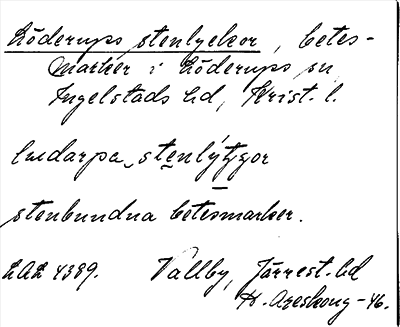 Löderups stenlyckor, betes-
marker i Löderups sn
Ingelstads hd, Krist. l.
stenlýtgor
stenbundna betesmarker.
LAL 4389. Vallby, Järrest. hd
K. Areskoug -46.